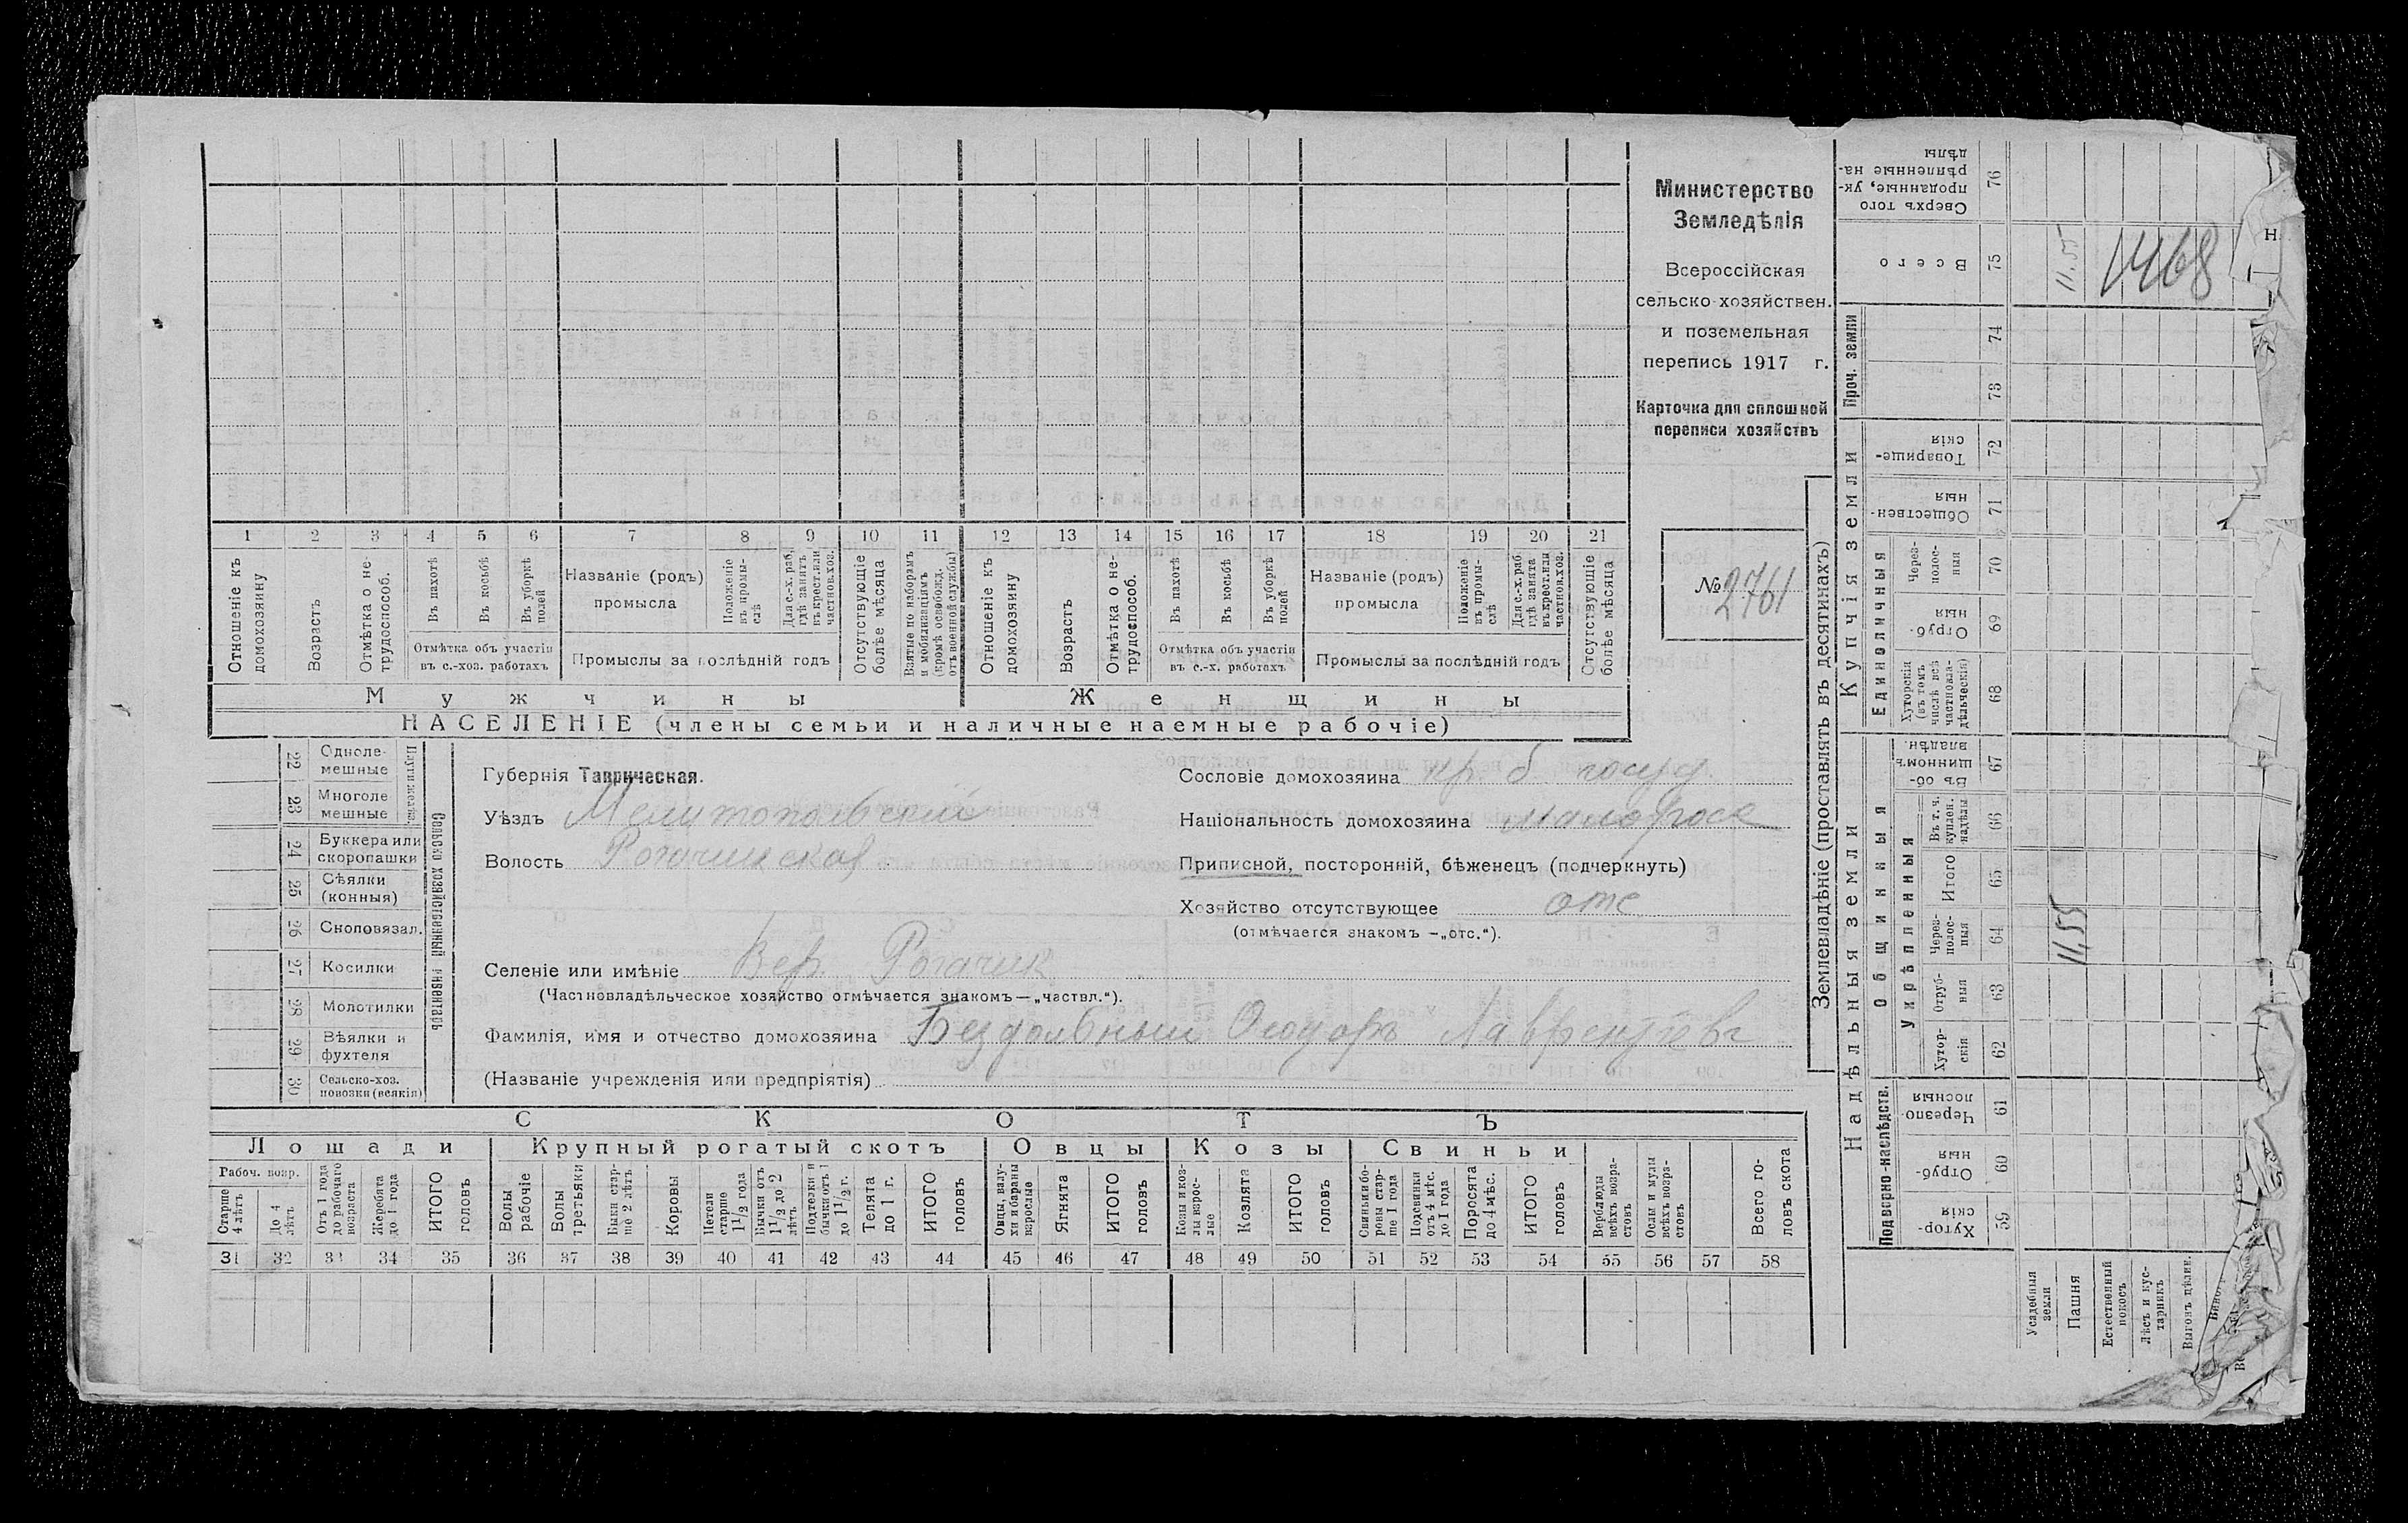 Министерство
Земледѣлія
Всероссійская
сельско-хозяйствен.
и поземельная
перепись 1917 г.
Карточка для сплошной
переписи хозяйствъ
№ 2761
1 2 3 4 5 6 7 8 9 10 11 12 13 14 15 16 17 18 19 20 21
Отношеніе къ домохозяину
Возрастъ
Отмѣтка о не-трудоспособ.
Въ пахотѣ
Въ косьбѣ
Въ уборкѣ полей
Отмѣтка объ участіи
въ с.-хоз. работахъ
Названіе (родъ)
промысла
Положеніе въ промы-слѣ
Для с.-х. раб. гдѣ занятъ въ крест. или частновл. хоз.
Промыслы за послѣдній годъ
Отсутствующіе болѣе мѣсяца
Взятые по наборамъ и мобилизаціямъ (кромѣ освобожд. отъ военной службы)
Отношеніе къ домохозяину
Возрастъ
Отмѣтка о не-трудоспособ.
Въ пахотѣ
Въ косьбѣ
Въ уборкѣ полей
Отмѣтка объ участіи
въ с.-х. работахъ
Названіе (родъ)
промысла
Положеніе въ промы-слѣ
Для с.-х. раб. гдѣ занята въ крест. или частнов. хоз.
Промыслы за послѣдній годъ
Отсутствующіе болѣе мѣсяца
Мужчины
Женщины
НАСЕЛЕНІЕ (члены семьи и наличные наемные рабочіе)
22 Одноле-мешные
23 Многоле мешные
24 Буккера или скоропашки
25 Сѣялки (конныя)
26 Сноповязал.
27 Косилки
28 Молотилки
29 Вѣялки и фухтеля
30 Сельско-хоз. повозки (всякія)
Сельско хозяйственный инвентарь
Губернія Таврическая.
Уѣздъ Мелитопольскій
Волость Рогачинская
Сословіе домохозяина кр. б госуд.
Національность домохозяина малоросс
Приписной, посторонній, бѣженецъ (подчеркнуть)
Хозяйство отсутствующее отс
(отмѣчается знакомъ —„отс.“).
Селеніе или имѣніе Вер. Рогачик
(Частновладѣльческое хозяйство отмѣчается знакомъ—„частвл.“).
Фамилія, имя и отчество домохозяина Бездольный Ѳеодоръ Лаврентіевъ
(Названіе учрежденія или предпріятія)
СКОТЪ
Лошади Крупный рогатый скотъ Овцы Козы Свиньи
Рабоч. возр.
Старше 4 лѣтъ
До 4 лѣтъ
Отъ 1 года до рабочаго возраста
Жеребята до 1 года
ИТОГО головъ
Волы рабочіе
Волы третьяки
Быки стар-ше 2 лѣтъ
Коровы
Нетели старше 1 1/2 года
Бычки отъ 1 1/2 до 2 лѣтъ
Подтелки и бычки отъ 1 до 1 1/2 г.
Телята до 1 г.
ИТОГО головъ
Овцы, валу-хи и бараны взрослые
Ягнята
ИТОГО головъ
Козы и коз-лы взрос-лые
Козлята
ИТОГО головъ
Свиньи и бо-ровы стар-ше 1 года
Подсвинки отъ 4 мѣс. до 1 года
Поросята до 4 мѣс.
ИТОГО головъ
Верблюды всѣхъ возра-стовъ
Ослы и мулы всѣхъ возра-стовъ
Всего го-ловъ скота
31 32 33 34 35 36 37 38 39 40 41 42 43 44 45 46 47 48 49 50 51 52 53 54 55 56 57 58
Землевладѣніе (проставлять въ десятинахъ)
Надѣльныя земли
Купчія земли
Проч. земли
Подворно-наслѣдств.
Общинныя
Укрѣпленныя
Единоличныя
Хутор-скія 59
Отруб-ныя 60
Черезпо-лосныя 61
Хутор-скія 62
Отруб-ныя 63
Через-полос-ныя 64
Итого 65
Въ т. ч. куплен. надѣлы 66
Въ об-щинномъ владѣн. 67
Хуторскія (въ томъ числѣ всѣ частновла-дѣльческія) 68
Отруб-ныя 69
Через-полос-ныя 70
Обществен-ныя 71
Товарище-скія 72
73
74
Всего 75
Сверхъ того проданные, ук-рѣпленные на-дѣлы 76
11,55
11.55
1468
Усадебныя земли
Пашня
Естественный покосъ
Лѣсъ и кус-тарникъ
Выгонъ цѣлин.